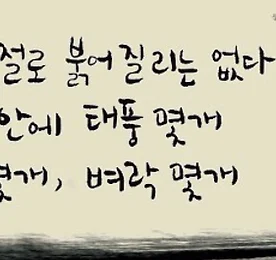 절로 붉어질리는 없다
안에 태풍 몇개
몇개, 벼락 몇개